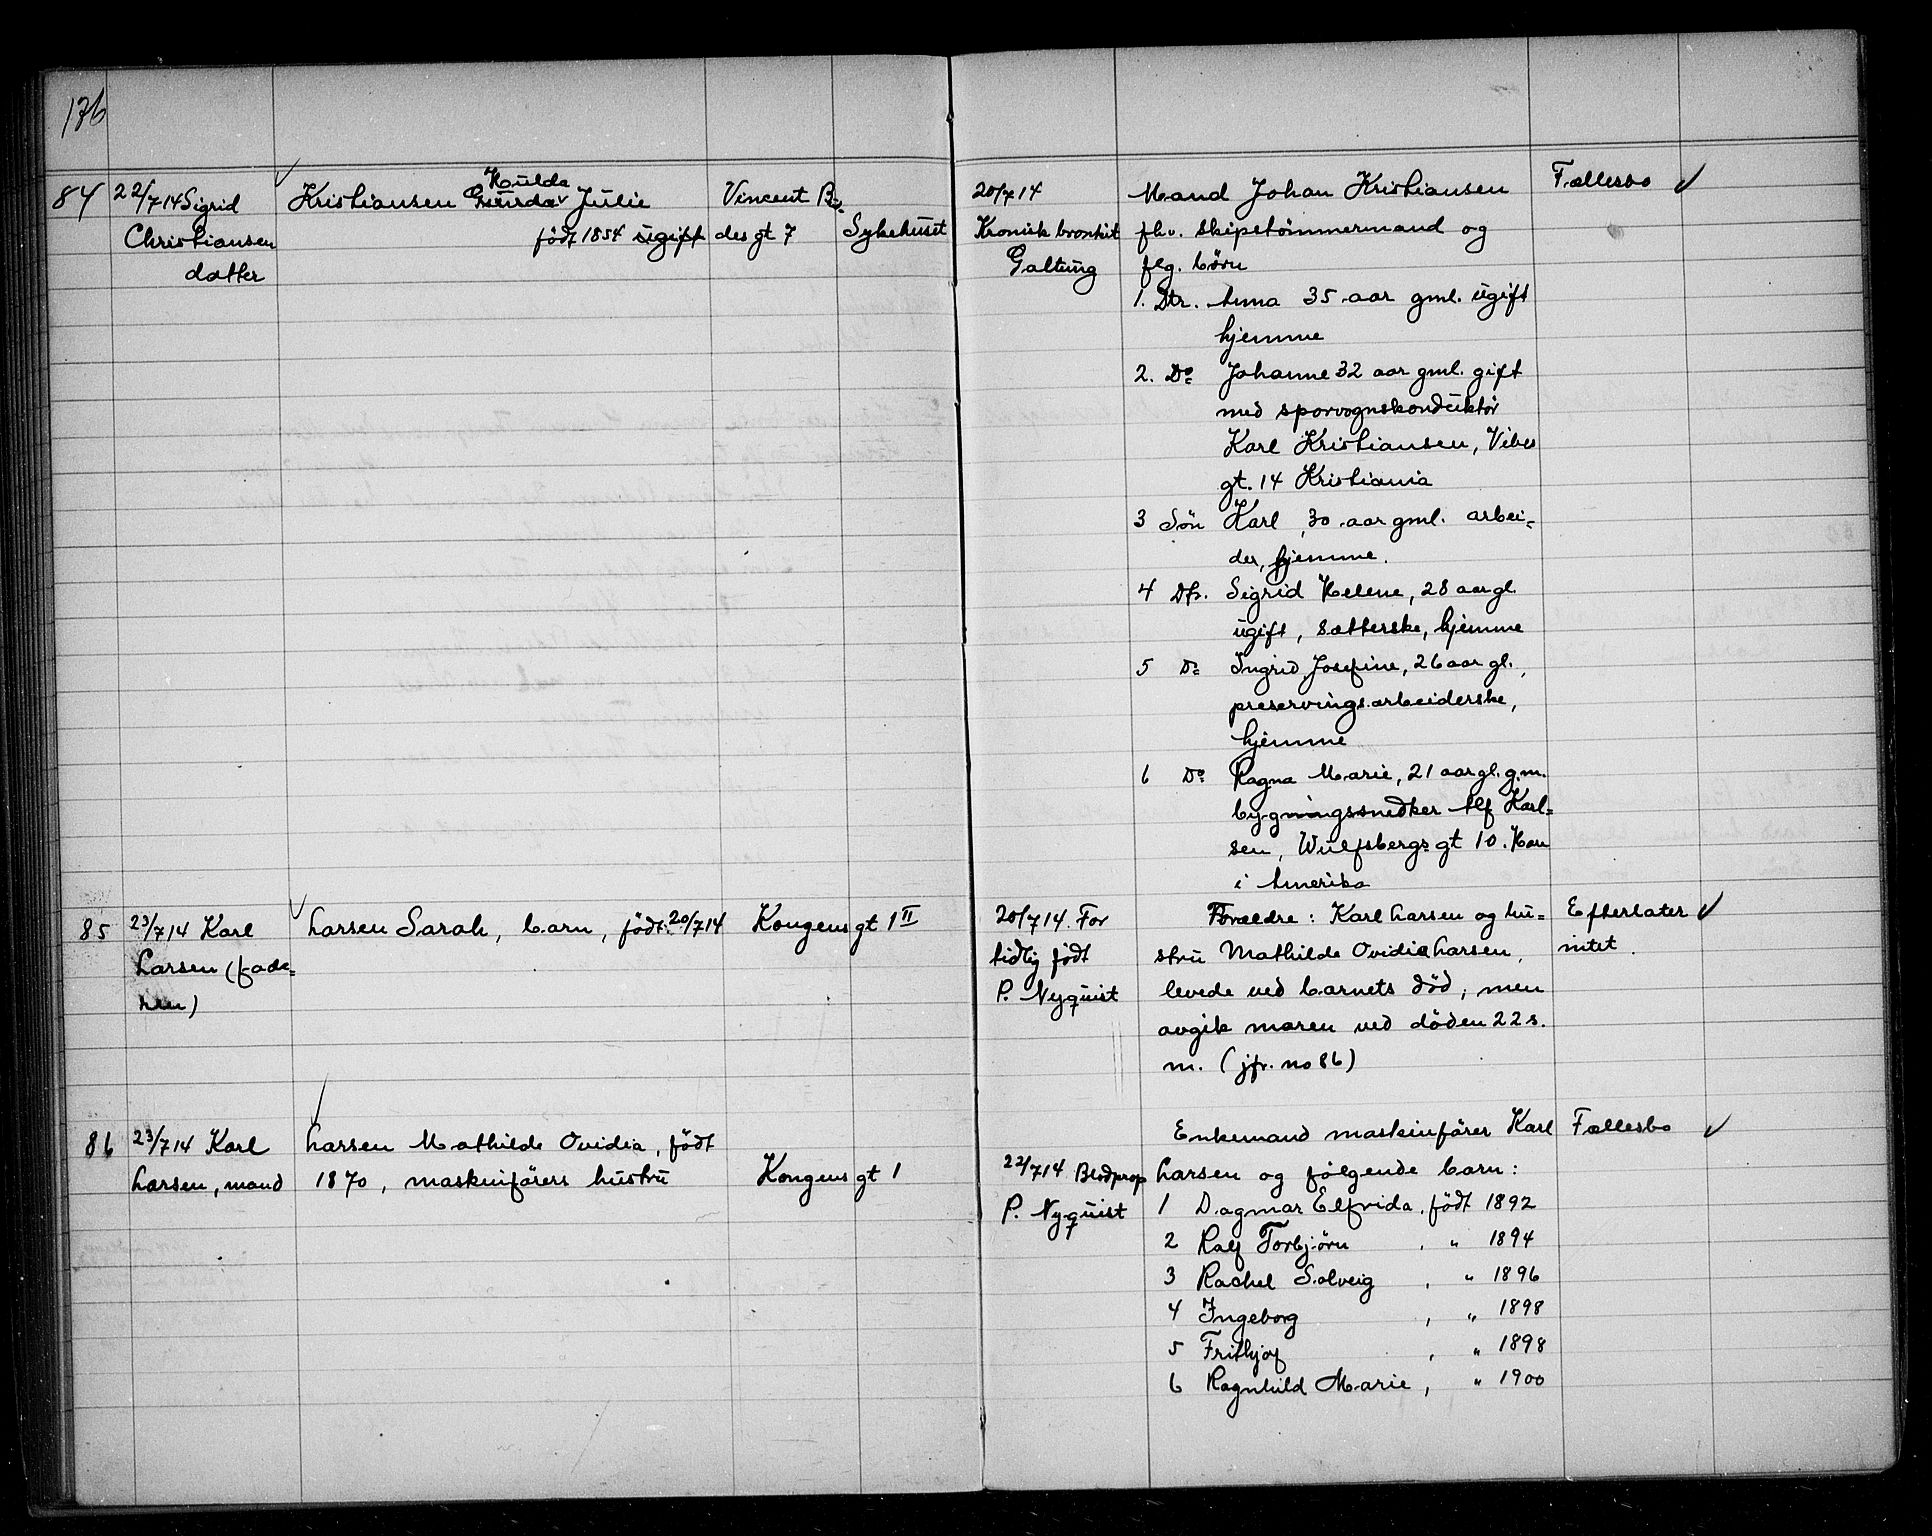 176
84
22/7 14 Sigrid
Christiansen
datter
Kristiansen Gunda Julie
Hulda
født 1854 ugift
Vincent Bu=
des gt 7
Sykehuset
20/7 14
Kronisk bronkit
Galtung
Mand Johan Kristiansen
fhv. skipstømmermand og
flg. børn
1. Dtr. Anna 35 aar gml. ugift
hjemme
2. Do Johanne 32 aar gml. gift
med sporvognskonduktør
Karl Kristiansen, Vibes
gt. 14 Kristiania
3 Søn Karl, 30 aar gml. arbei=
der, hjemme.
4 Dtr. Sigrid Helene, 28 aar gl.
ugift, sætterske, hjemme
5 Do Ingrid Josefine, 26 aar gl.,
preservingsarbeiderske,
hjemme
6 Do Ragna Marie, 21 aar gl. g.m.
bygningssnedker Alf Karl=
sen, Wulfsbergs gt 10. Han
i Amerika
Fællesbo ✓
85
23/7 14 Karl
Larsen (fade=
ren)
Larsen Sarah, barn, født 20/7 14
Kongens gt 1 II
20/7 14. For
tidlig født
P. Nyquist
Forældre: Karl Larsen og hu=
stru Mathilde Ovidia Larsen,
levede ved barnets død, men
avgik moren ved døden 22 s.
m. (jfr. no 86)
Efterlater ✓
intet.
86
23/7 14 Karl
Larsen, mand
Larsen Mathilde Ovidia, født
1870, maskinførers hustru
Kongens gt 1
22/7 14 Blodprop
P. Nyquist
Enkemand maskinfører Karl
Larsen og følgende barn:
1 Dagmar Elfrida, født 1892
2 Ralf Torbjørn , " 1894
3 Rachel Solveig , " 1896
4 Ingeborg , " 1898
5 Frithjof , " 1898
6 Ragnhild Marie, " 1900
Fællesbo ✓